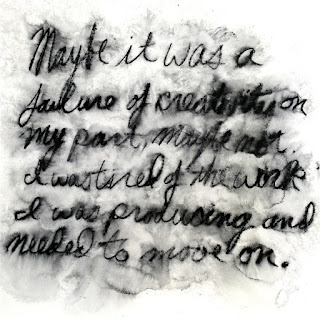 Maybe it was a
failure of creativity on
my part, maybe not.
I was tired of the work
I was producing and
needed to move on.